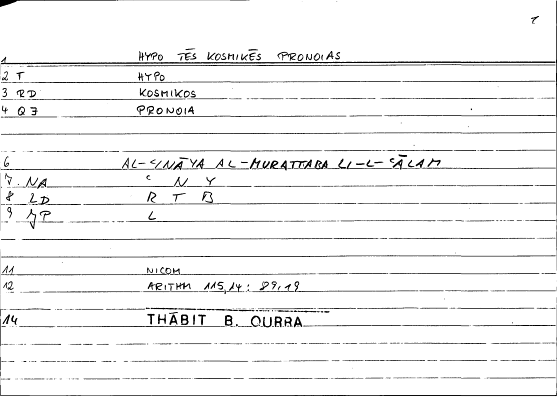 τ
1 HYPO TĒS KOSMIKĒS PRONOIAS
2 T HYPO
3 RD KOSMIKOS
4 Q7 PRONOIA
6 AL-ʿINĀYA AL-MURATTABA LI-L-ʿĀLAM
7 NA ʿ N Y
8 LD R T B
9 JP L
11 NICOM
12 ARITHM 115,14 : 89,19
14 THĀBIT B. QURRA